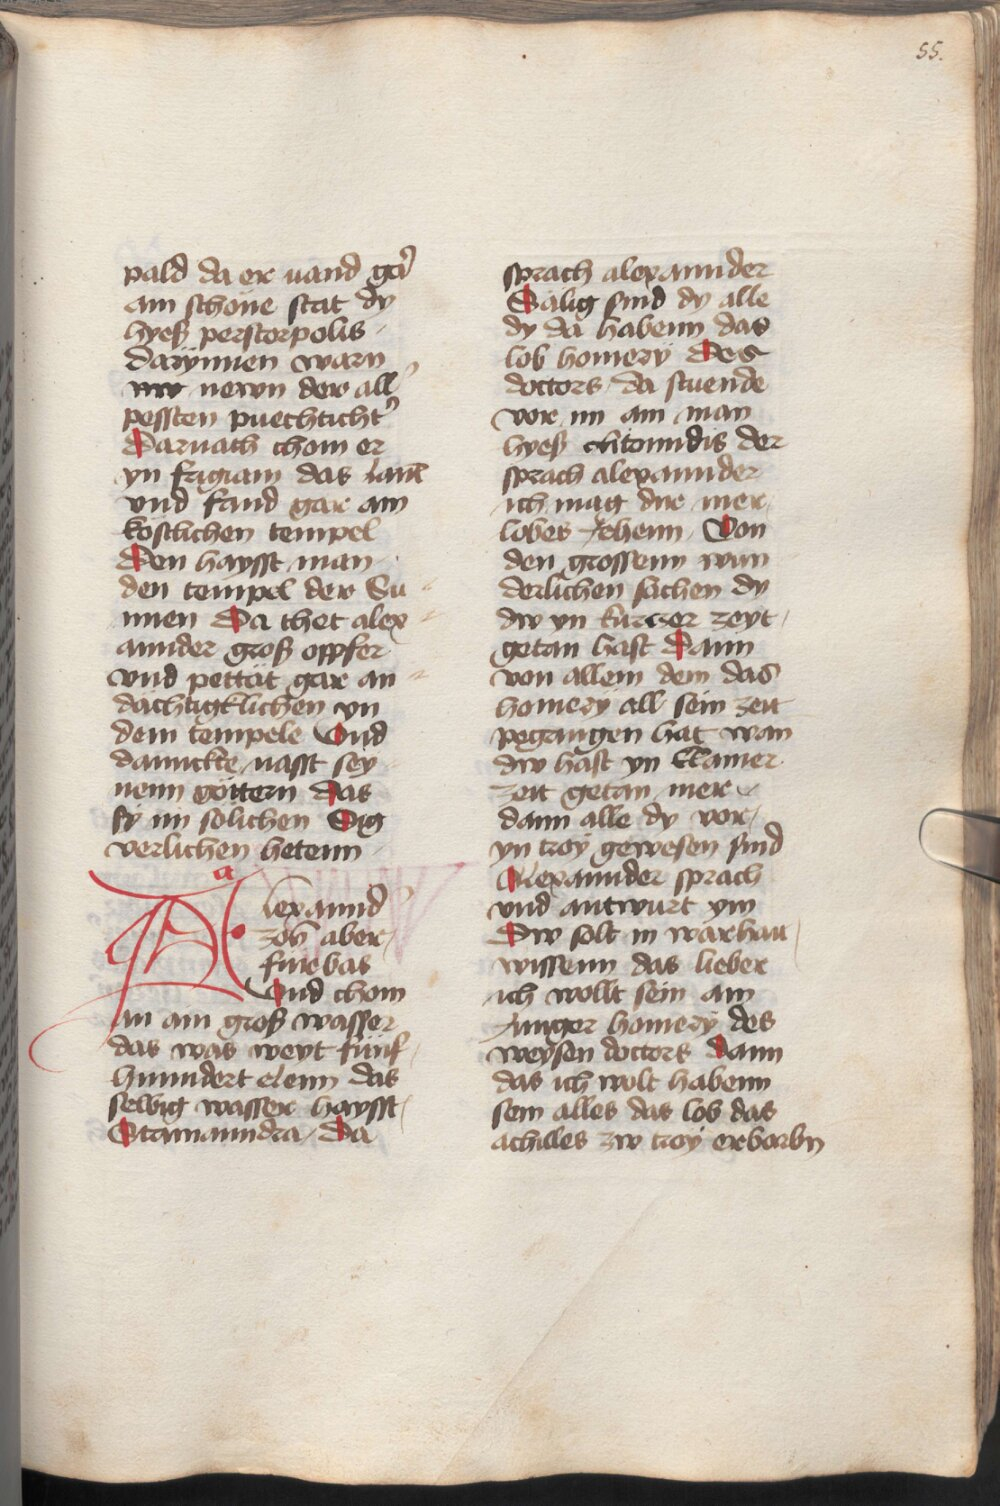 55.
pald da er uand gar
am schone stat dy
hyeß perstorpolis
darynnen warn
new newn der all
pessten puechticht
Darnach chom er
yn frigiam das lannt
vnd fand gar am
kostlichen tempel
Den haysst man
den tempel der Su
nnen Da thet alex
annder groß oppfer
vnd pettat gar an
dachtigklichen yn
dem tempele Vnd
danckte vasst sey
nenn göttern Das
sy im solichen Sig
verlichen hetenn
Alexannd
zoh aber
furbas
Vnd chom
an am groß wasser
das was weyt funf
hunndert elenn das
selbig wasser haysst
Stramanndra Da
sprach alexannder
Salig sind dy alle
dy da habenn das
lob homery Des
doctors da stuende
vor im am man
hyeß clitomidis der
sprach alexannder
ich mag dir mer
lobes Jehenn Von
den grossenn wun
derlichen sachen dy
dw yn kurczer zeyt
getan hast Dann
von allem dem das
homery all sein zeit
pegangen hat wan
dw hast yn klainer
zeit getan mer
dann alle dy vor
yn troy gewesen sind
Alexannder sprach
vnd antwurt ym
Dw solt in warhait
wissenn das lieber
ich wollt sein am
Junger homery des
weysen doctors Dann
das ich wolt habenn
sein alles das lob das
achilles zw troy erborbn